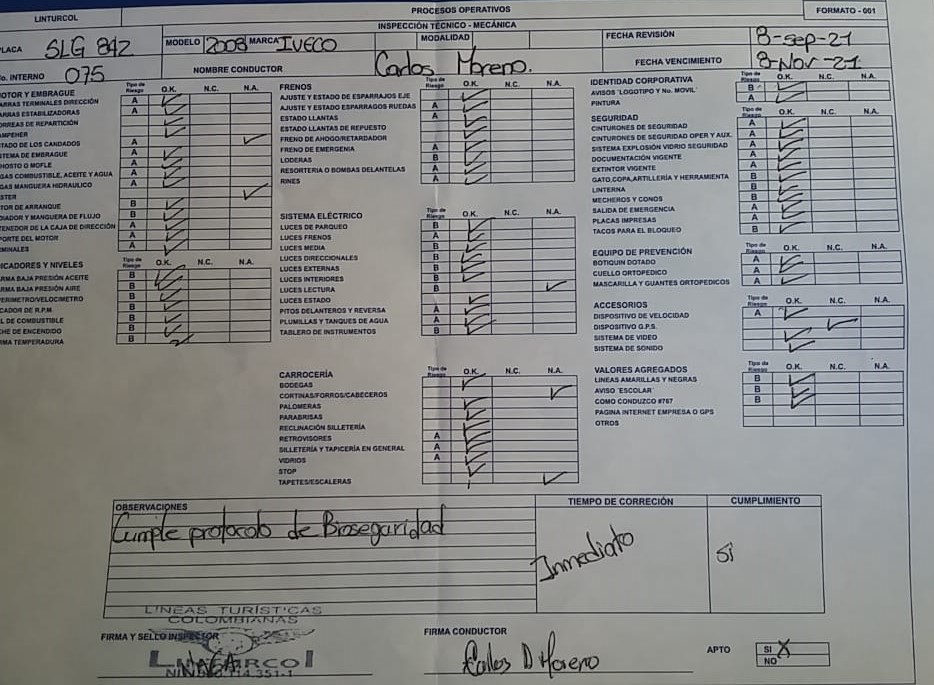 LINTURCOL
PROCESOS OPERATIVOS
FORMATO - 001
INSPECCIÓN TÉCNICO - MECÁNICA
LACA SLG 842
MODELO 2008 MARCA IVECO
MODALIDAD
FECHA REVISIÓN 8-sep-21
o. INTERNO 075
NOMBRE CONDUCTOR Carlos Moreno.
FECHA VENCIMIENTO 8-Nov-21
OTOR Y EMBRAGUE
Tipo de Riesgo O.K. N.C. N.A.
ARRAS TERMINALES DIRECCIÓN A
ARRAS ESTABILIZADORAS A
ORREAS DE REPARTICIÓN
AMPEHER
TADO DE LOS CANDADOS A
TEMA DE EMBRAGUE A
HOSTO O MOFLE A
GAS COMBUSTIBLE, ACEITE Y AGUA A
GAS MANGUERA HIDRAULICO A
STER
TOR DE ARRANQUE B
DIADOR Y MANGUERA DE FLUJO B
TENEDOR DE LA CAJA DE DIRECCIÓN A
PORTE DEL MOTOR A
MINALES A
ICADORES Y NIVELES
Tipo de Riesgo O.K. N.C. N.A.
RMA BAJA PRESIÓN ACEITE B
RMA BAJA PRESIÓN AIRE B
ERIMETRO/VELOCIMETRO B
CADOR DE R.P.M. B
L DE COMBUSTIBLE B
CHE DE ENCENDIDO B
MA TEMPERADURA B
FRENOS
Tipo de Riesgo O.K. N.C. N.A.
AJUSTE Y ESTADO DE ESPARRAJOS EJE
AJUSTE Y ESTADO ESPARRAGOS RUEDAS A
ESTADO LLANTAS A
ESTADO LLANTAS DE REPUESTO
FRENO DE AHOGO/RETARDADOR
FRENO DE EMERGENIA A
LODERAS B
RESORTERIA O BOMBAS DELANTELAS A
RINES A
SISTEMA ELÉCTRICO
Tipo de Riesgo O.K. N.C. N.A.
LUCES DE PARQUEO B
LUCES FRENOS A
LUCES MEDIA B
LUCES DIRECCIONALES B
LUCES EXTERNAS B
LUCES INTERIORES B
LUCES LECTURA B
LUCES ESTADO
PITOS DELANTEROS Y REVERSA A
PLUMILLAS Y TANQUES DE AGUA A
TABLERO DE INSTRUMENTOS B
CARROCERÍA
Tipo de Riesgo O.K. N.C. N.A.
BODEGAS
CORTINAS/FORROS/CABECEROS
PALOMERAS
PARABRISAS
RECLINACIÓN SILLETERÍA
RETROVISORES A
SILLETERÍA Y TAPICERÍA EN GENERAL A
VIDRIOS A
STOP
TAPETES/ESCALERAS
IDENTIDAD CORPORATIVA
Tipo de Riesgo O.K. N.C. N.A.
AVISOS "LOGOTIPO Y No. MOVIL" B
PINTURA A
SEGURIDAD
Tipo de Riesgo O.K. N.C. N.A.
CINTURONES DE SEGURIDAD A
CINTURONES DE SEGURIDAD OPER Y AUX. A
SISTEMA EXPLOSIÓN VIDRIO SEGURIDAD A
DOCUMENTACIÓN VIGENTE A
EXTINTOR VIGENTE A
GATO,COPA,ARTILLERÍA Y HERRAMIENTA B
LINTERNA B
MECHEROS Y CONOS B
SALIDA DE EMERGENCIA A
PLACAS IMPRESAS A
TACOS PARA EL BLOQUEO B
EQUIPO DE PREVENCIÓN
Tipo de Riesgo O.K. N.C. N.A.
BOTIQUIN DOTADO A
CUELLO ORTOPEDICO A
MASCARILLA Y GUANTES ORTOPEDICOS A
ACCESORIOS
Tipo de Riesgo O.K. N.C. N.A.
DISPOSITIVO DE VELOCIDAD A
DISPOSITIVO G.P.S.
SISTEMA DE VIDEO
SISTEMA DE SONIDO
VALORES AGREGADOS
Tipo de Riesgo O.K. N.C. N.A.
LINEAS AMARILLAS Y NEGRAS B
AVISO "ESCOLAR" B
COMO CONDUZCO #767 B
PAGINA INTERNET EMPRESA O GPS
OTROS
OBSERVACIONES
TIEMPO DE CORRECIÓN
CUMPLIMIENTO
Cumple protocolo de Bioseguridad
Inmediato
Si
LINEAS TURÍSTICAS
COLOMBIANAS
FIRMA Y SELLO INSPECTOR
FIRMA CONDUCTOR
Carlos D Moreno
APTO
SI X
NO